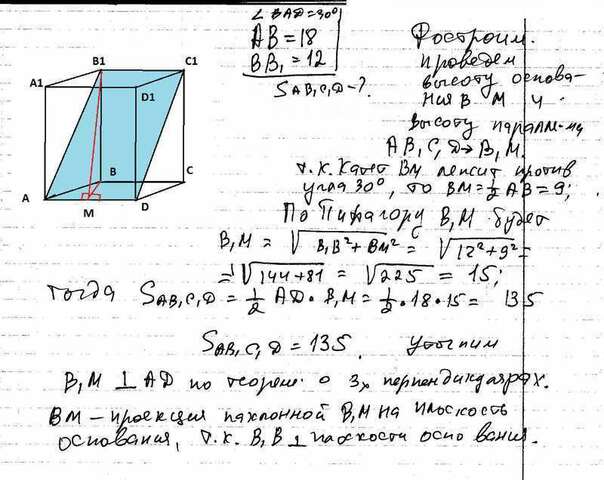 ∠ BAD = 30°
AB = 18
BB₁ = 12
S AB₁C₁D - ?
Построим.
проведем
высоту основа-
ния В М и
высоту паралл-ма
AB₁C₁D → B₁M.
т.к. катет BM лежит против
угла 30°, то BM = ½ AB = 9;
По Пифагору B₁M будет
B₁M = √B₁B² + BM² = √12² + 9² =
= √144 + 81 = √225 = 15;
тогда S AB₁C₁D = ½ AD · B₁M = ½ · 18 · 15 = 135
S AB₁C₁D = 135. уточним
B₁M ⊥ AD по теореме о 3х перпендикулярах.
BM – проекция наклонной B₁M на плоскость
основания, т.к. B₁B ⊥ плоскости основания.
B1 C1
A1 D1
B C
A M D